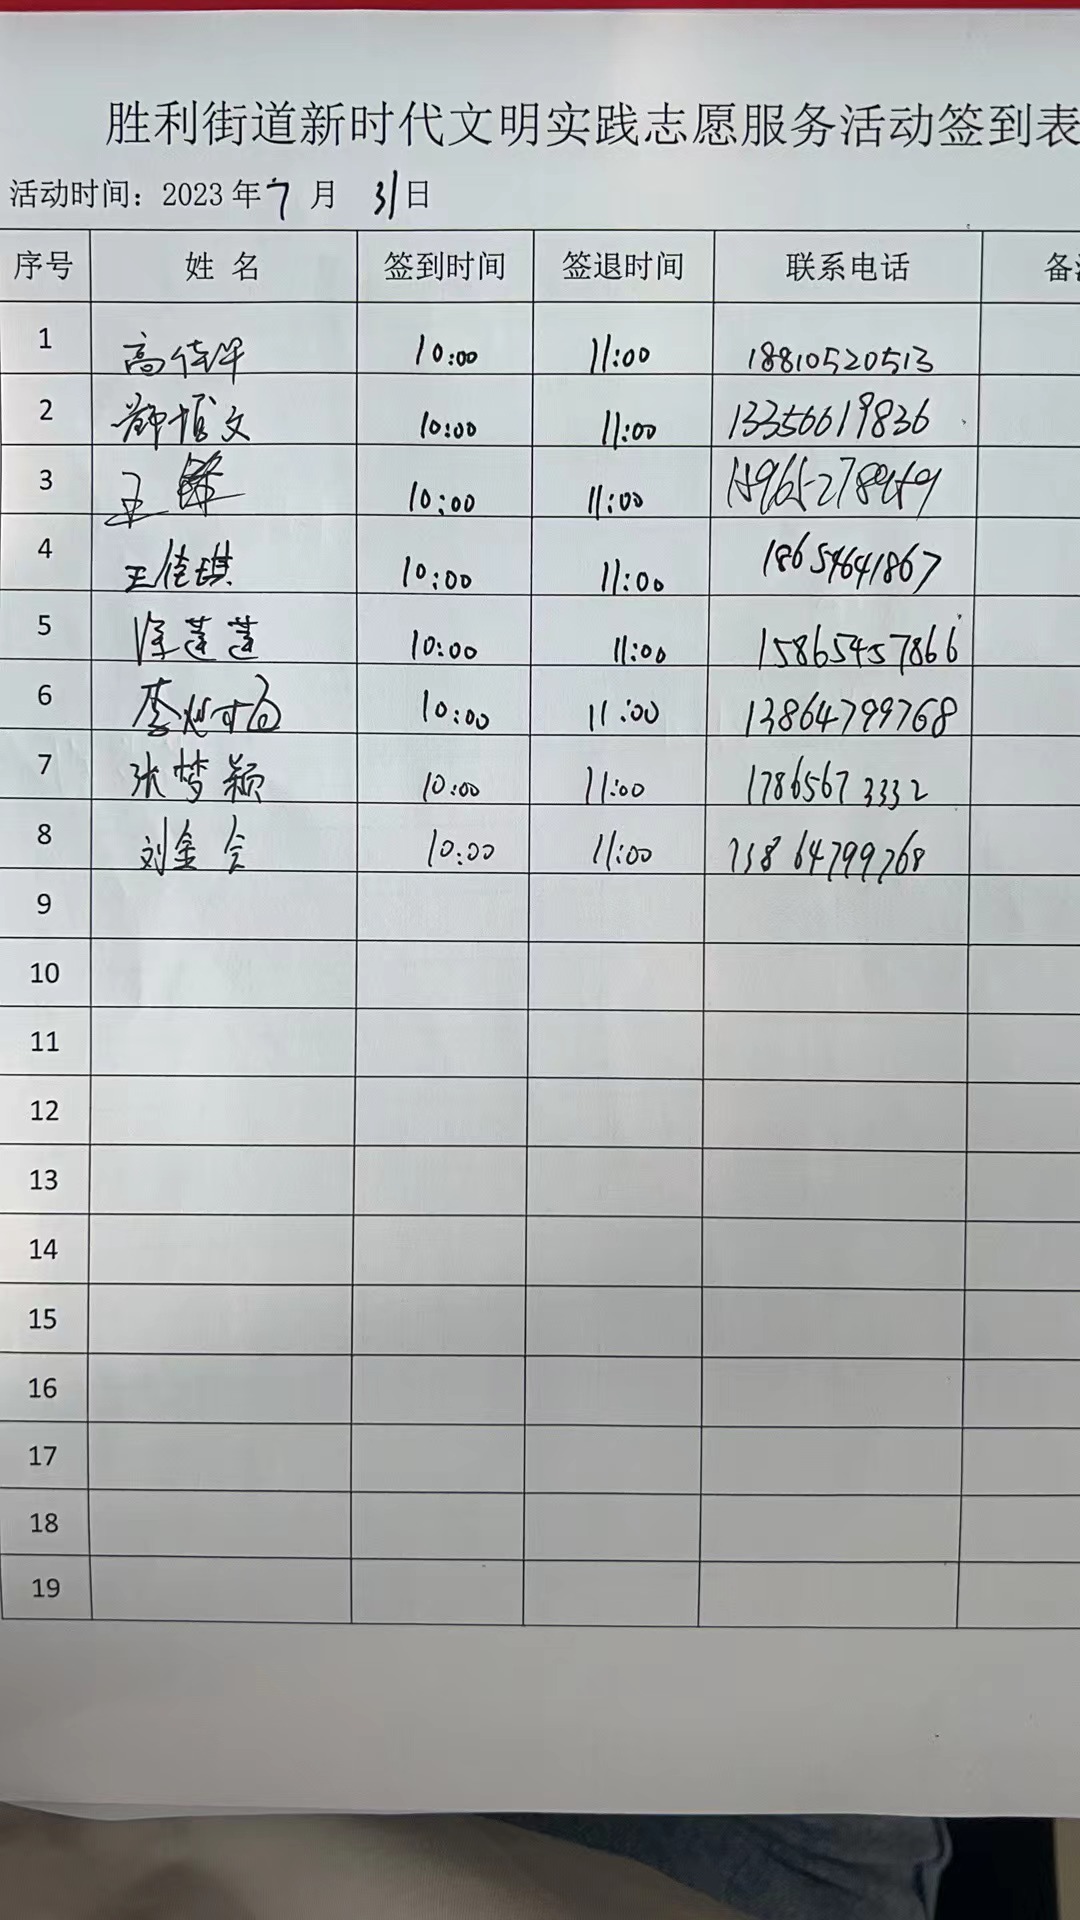 胜利街道新时代文明实践志愿服务活动签到表
活动时间：2023年7月 31日
序号 姓 名 签到时间 签退时间 联系电话 备
1 高佳 10:00 11:00 18810520513
2 文 10:00 11:00 13356619836
3 王 10:00 11:00
4 王佳琪 10:00 11:00 18654641867
5 徐莲莲 10:00 11:00 15865457866
6 李 10:00 11:00 13864799768
7 张梦颖 10:00 11:00 17865673332
8 刘金会 10:00 11:00 13864799768
9
10
11
12
13
14
15
16
17
18
19